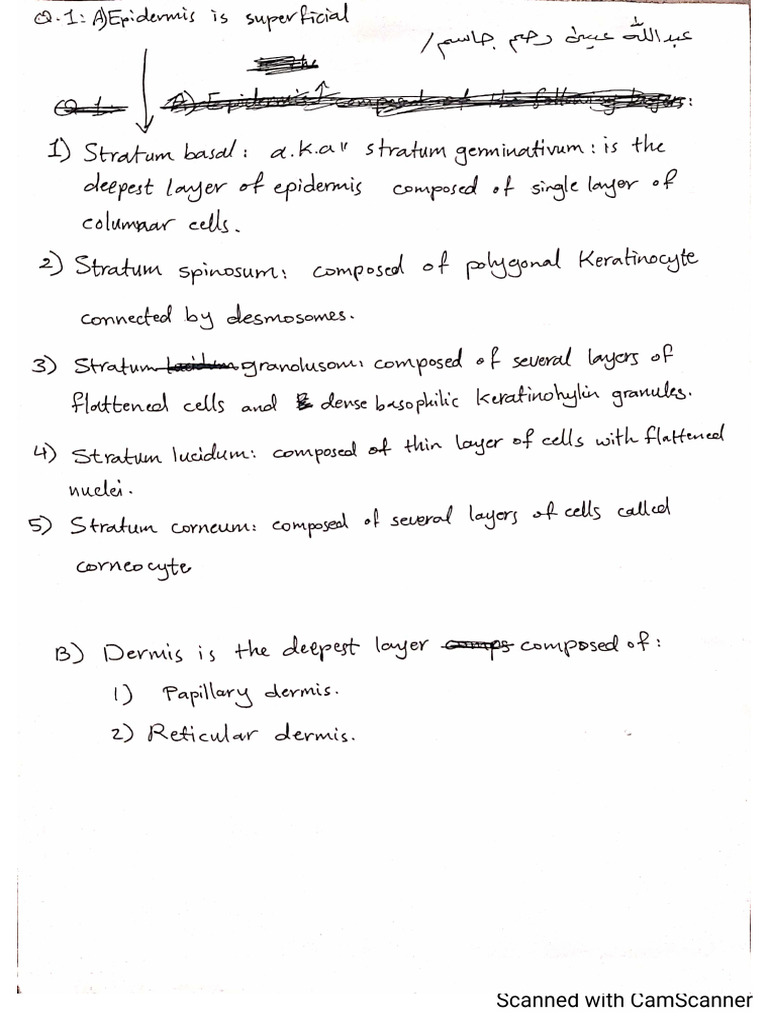 Q.1: A) Epidermis is superficial
عبدالله عبيس رحيم جاسم /
1) Stratum basal: a.k.a " stratum germinativum: is the
deepest layer of epidermis composed of single layer of
columnar cells.
2) Stratum spinosum: composed of polygonal Keratinocyte
connected by desmosomes.
3) Stratum granolusom: composed of several layers of
flattened cells and dense basophilic keratinohylin granules.
4) Stratum lucidum: composed of thin layer of cells with flattened
nuclei.
5) Stratum corneum: composed of several layers of cells called
corneocyte
B) Dermis is the deepest layer composed of:
1) Papillary dermis.
2) Reticular dermis.
Scanned with CamScanner